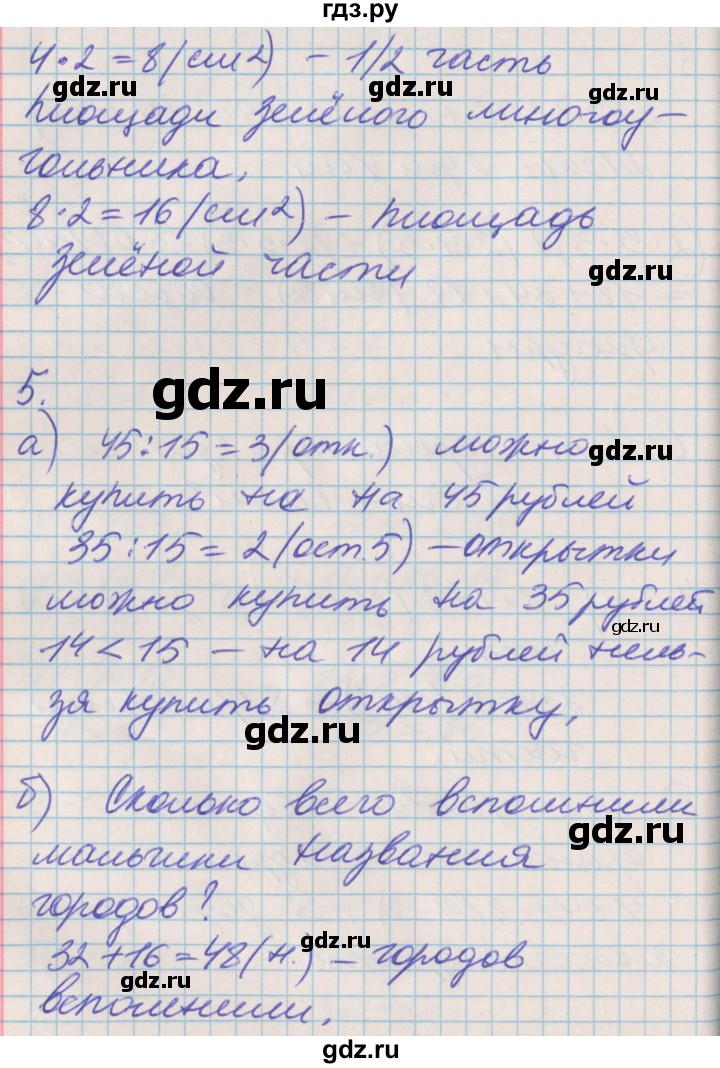 гдз.ру
4·2=8(см2) – 1/2 часть
площади зелёного многоу–
гольника.
8·2=16(см2) – площадь
зелёной части
gdz.ru
gdz.ru
gdz.ru
gdz.ru
5.
gdz.ru
а) 45:15=3(отк.) можно
gdz.ru
купить на на 45 рублей
35:15=2(ост.5) – открытки
можно купить на 35 рублей
gdz.ru
14<15 – на 14 рублей нель–
зя купить открытку.
gdz.ru
б) Сколько всего вспомнили
gdz.ru
мальчики названия
городов?
gdz.ru
32+16=48(н.) – городов
gdz.ru
вспомнили.
gdz.ru